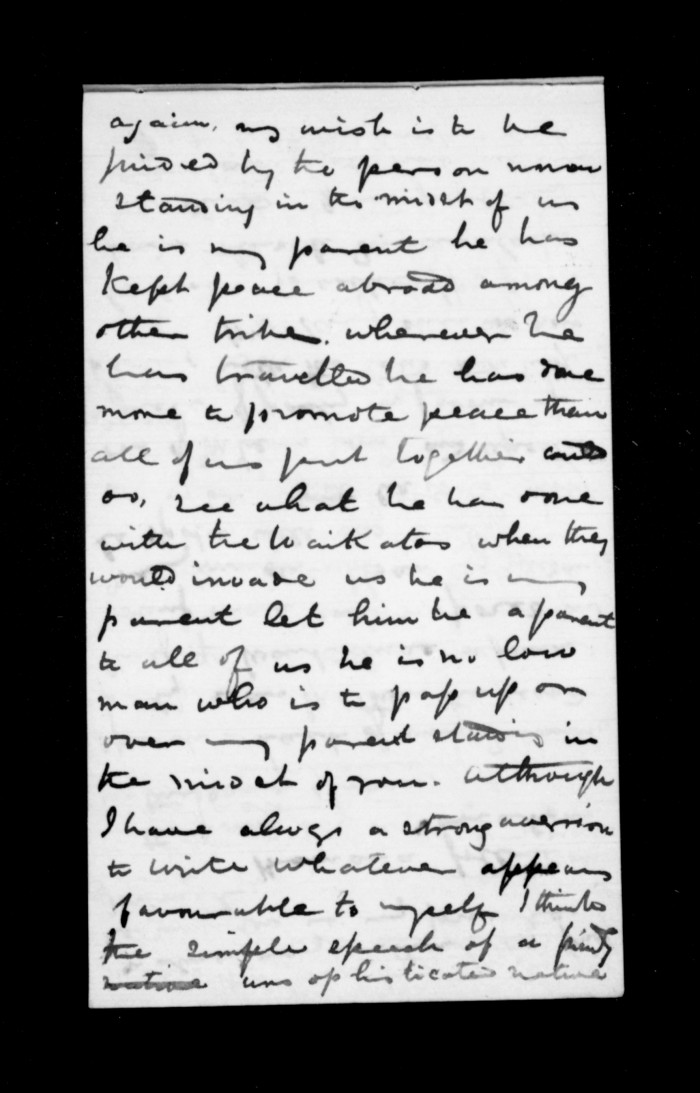 again, my wish is to be
guided by the person now
standing in the midst of us
he is my parent he has
kept peace abroad among
other tribes. wherever he
has travelled he has done
more to promote peace than
all of us put together could
do, see what he has done
with the Waikatos when they
would invade us he is my
parent let him be a parent
to all of us he is no low
man who is to pass up or
over my parent stands in
the midst of you. Although
I have always a strong aversion
to write whatever appears
favourable to myself I think
the simple speech of a
unsophisticated native